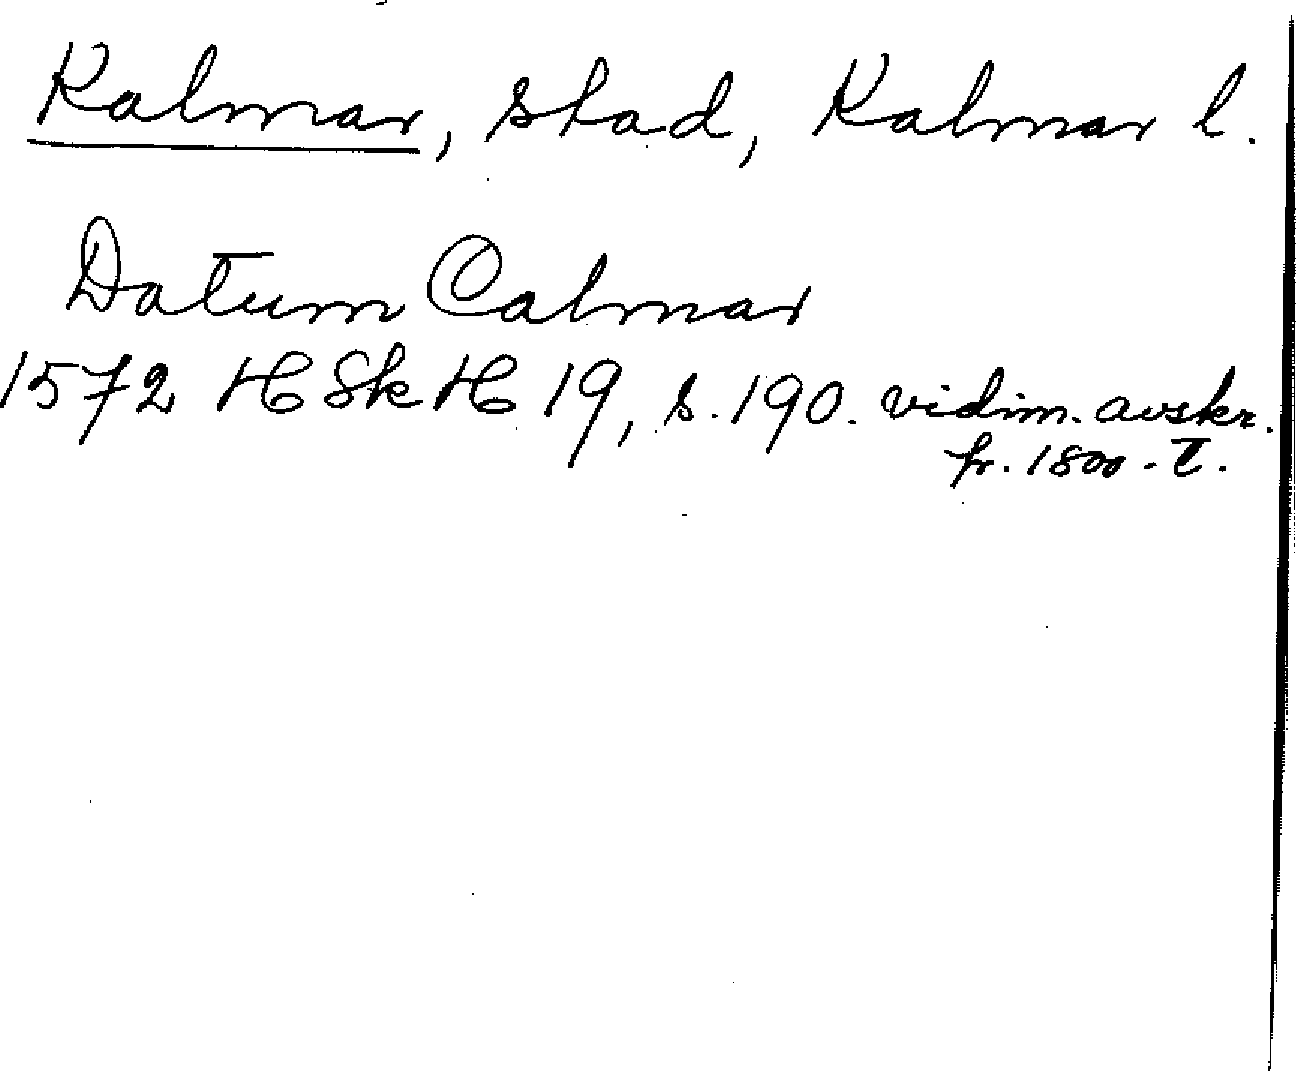 Kalmar, stad, Kalmar l.
Datum Calmar
1572 HSkH 19, s. 190. vidim. avskr.
fr. 1800-t.